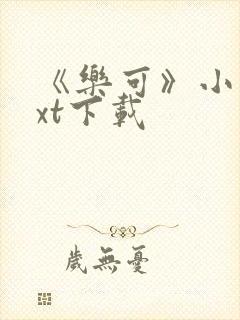 《樂可》小
xt下載
歲無憂